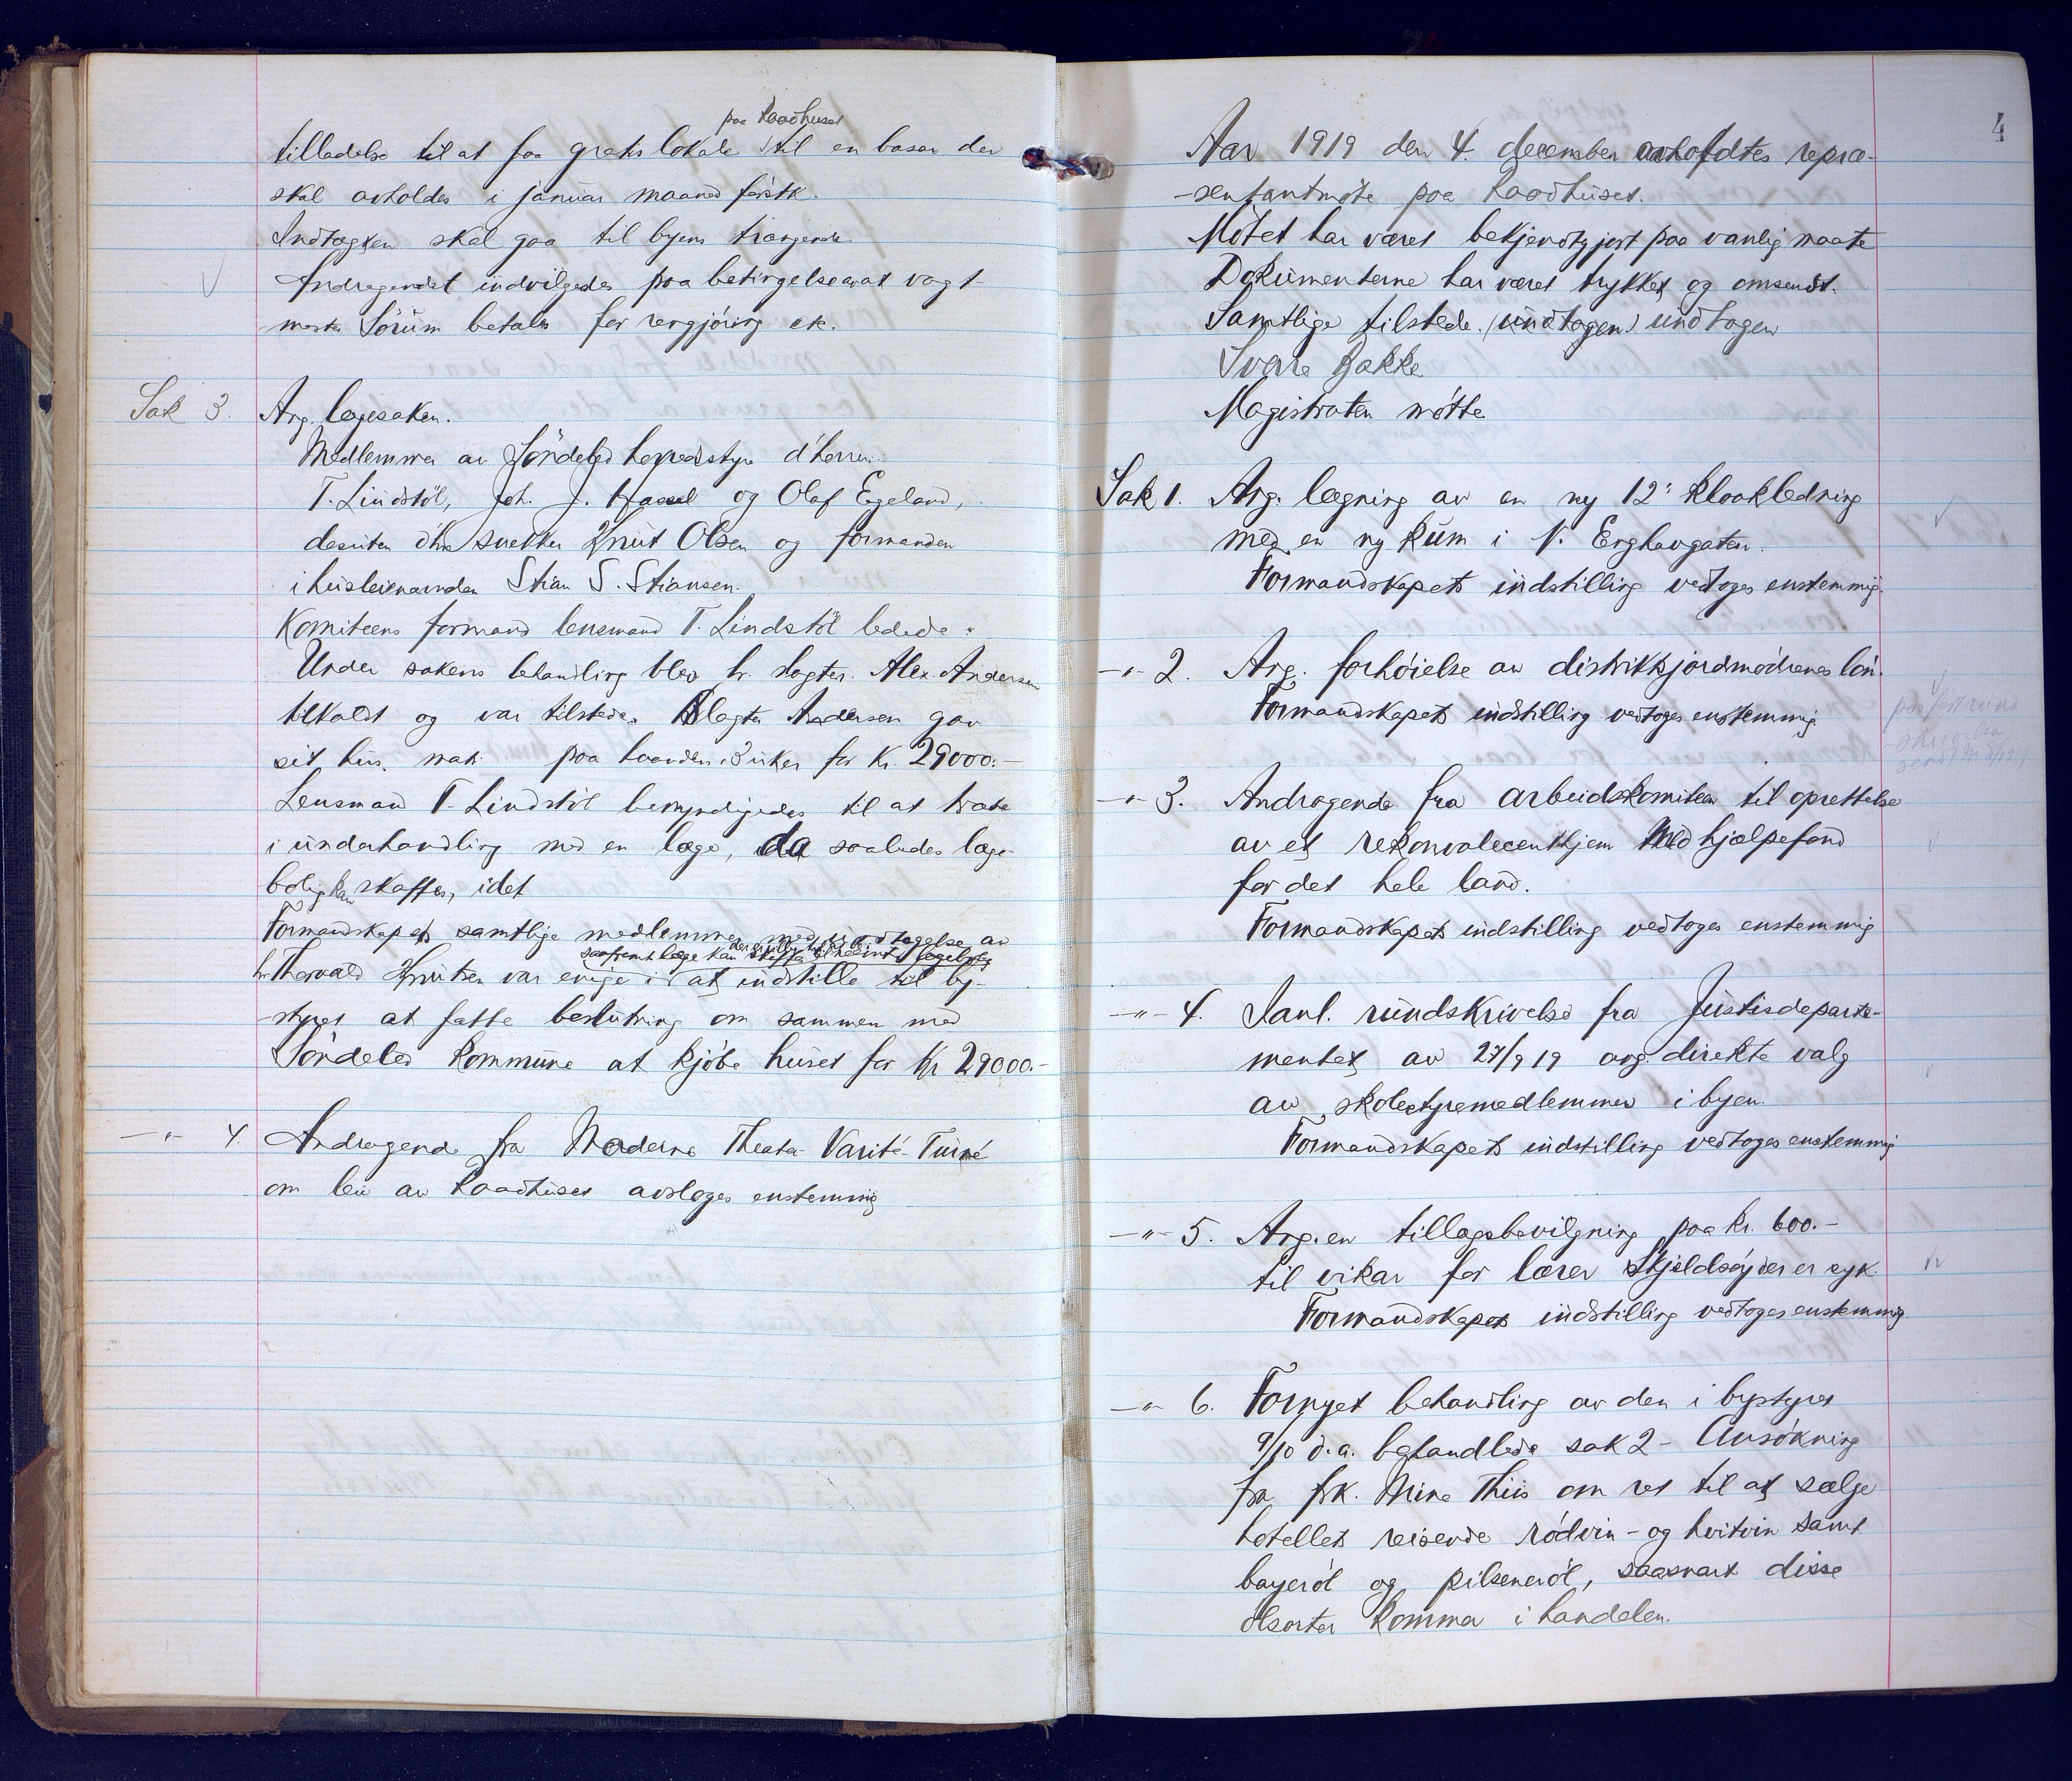 paa Raadhuset
tilladelse til at faa gratis lokale til en basar der
skal avholdes i januar maaned førstk.
Indtægten skal gaa til byens trængende.
Andragendet indvilgedes paa betingelse av at vagt-
mester Sørum betales for rengjøring etc.
Sak 3. Ang. lægesaken.
Medlemmer av Søndeled herredsstyre d'herrer
T. Lindstøl, Joh. J. Hassel og Olaf Egeland,
desuten d'hr. snekker Knut Olsen og formanden
i husleienævnden Stian S. Stiansen.
Komiteens formand lensmand T. Lindstøl ledede.
Under sakens behandling blev hr. slagter Alex. Andersen
tilkaldt og var tilstede. Slagter Andersen gav
sit hus, mat. paa haanden i 3 uker for kr. 29000.-
Lensmand T. Lindstøl bemyndigedes til at træte
i underhandling med en læge, da saaledes læge-
bolig kan skaffes, idet
Formandskapets samtlige medlemmer med undtagelse av
saafremt læge kan skaffes
hr. Thorvald Knutsen var enige i at indstille til by-
styret at fatte beslutning om sammen med
Søndeled kommune at kjøbe huset for Kr 29000.-
-"- 4. Andragende fra Moderne Theater Varité-Turné
om leie av Raadhuset avsloges enstemmig
4
Aar 1919 den 4. december avholdtes repræ-
-sentantmøte paa Raadhuset.
Møtet har været bekjendtgjort paa vanlig maate
Dokumenterne har været trykket og omsendt.
Samtlige tilstede. (undtagen) undtagen
Svare Bakke.
Magistraten møtte
Sak 1. Ang. lægning av en ny 12" kloakledning
med en ny kum i N. Enghavgaten.
Formandskapets indstilling vedtoges enstemmig.
-"- 2. Ang. forhøielse av distriktsjordmødrenes løn.
Formandskapets indstilling vedtoges enstemmig
-"- 3. Andragende fra arbeidskomiteen til oprettelse
av et rekonvalecenthjem med hjælpefond
for det hele land.
Formandskapets indstilling vedtoges enstemmig
-"- 4. Sanl. rundskrivelse fra Justisdeparte-
mentet av 27/9 19 ang. direkte valg
av skolestyremedlemmer i byen.
Formandskapets indstilling vedtoges enstemmig
-"- 5. Ang. en tillægsbevilgning paa kr. 600.-
til vikar for lærer Skjeldsøy der er syk.
Formandskapets indstilling vedtoges enstemmig.
-"- 6. Fornyet behandling av den i bystyret
9/10 d.a. behandlede sak 2 - Ansøkning
fra frk. Mina Thiis om ret til at sælge
hotellets reisende rødvin- og hvitvin samt
bayerøl og pilsenerøl, saasnart disse
ølsorter kommer i handelen.